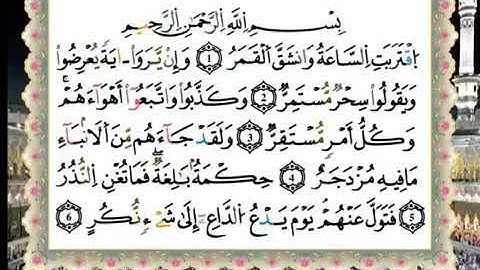 بِسْمِ اللَّهِ الرَّحْمَٰنِ الرَّحِيمِ
اِقْتَرَبَتِ السَّاعَةُ وَانْشَقَّ الْقَمَرُ ﴿1﴾ وَإِنْ يَّرَوْا اٰيَةً يُّعْرِضُوْا
وَيَقُولُوْا سِحْرٌ مُّسْتَمِرٌّ ﴿2﴾ وَكَذَّبُوْا وَاتَّبَعُوْٓا أَهْوَآءَهُمْ ۚ
وَكُلُّ أَمْرٍ مُّسْتَقِرٌّ ﴿3﴾ وَلَقَدْ جَآءَهُمْ مِّنَ الْأَنْبَآءِ
مَافِيهِ مُزْدَجَرٌ ﴿4﴾ حِكْمَةٌۢ بَالِغَةٌ ۖ فَمَاتُغْنِ النُّذُرُ
﴿5﴾ فَتَوَلَّ عَنْهُمْ ۘ يَوْمَ يَدْعُ الدَّاعِ إِلَىٰ شَىْءٍ نُّكُرٍ ﴿6﴾